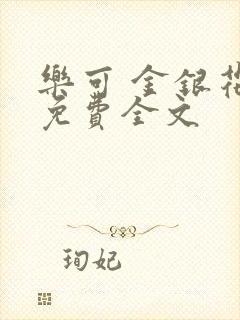 樂可 金銀花
免費全文
珣妃